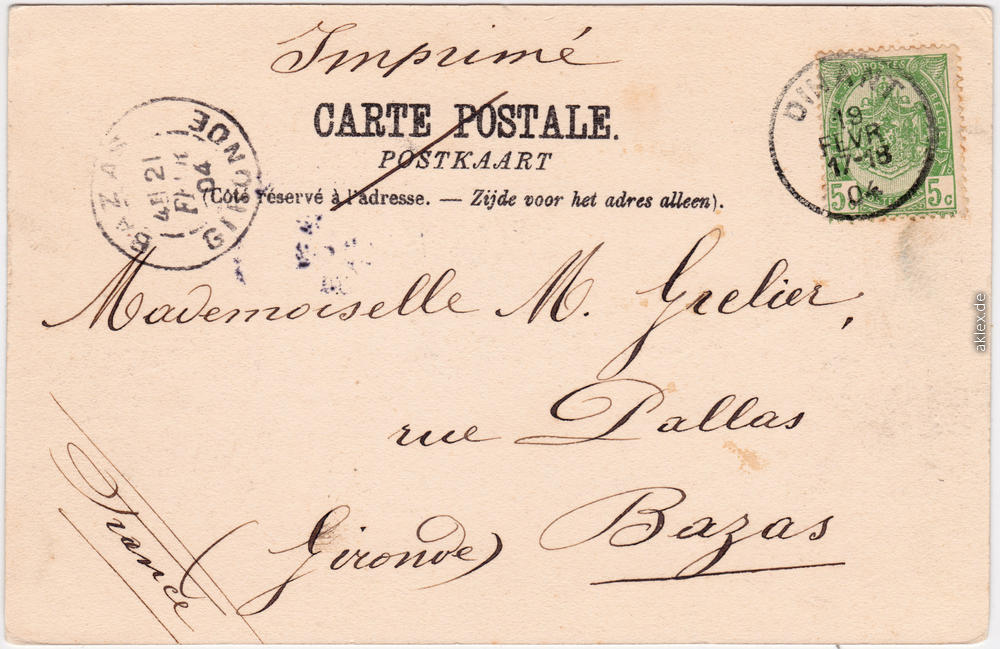 Imprimé
CARTE POSTALE.
POSTKAART
(Côté réservé à l'adresse. — Zijde voor het adres alleen).
BAZAS GIRONDE
21
FEVR
04
POSTES
BELGIE
5 5c
DINANT
19
FEVR
17-18
04
Mademoiselle M. Grelier,
rue Pallas
Bazas
(Gironde)
France
aklex.de